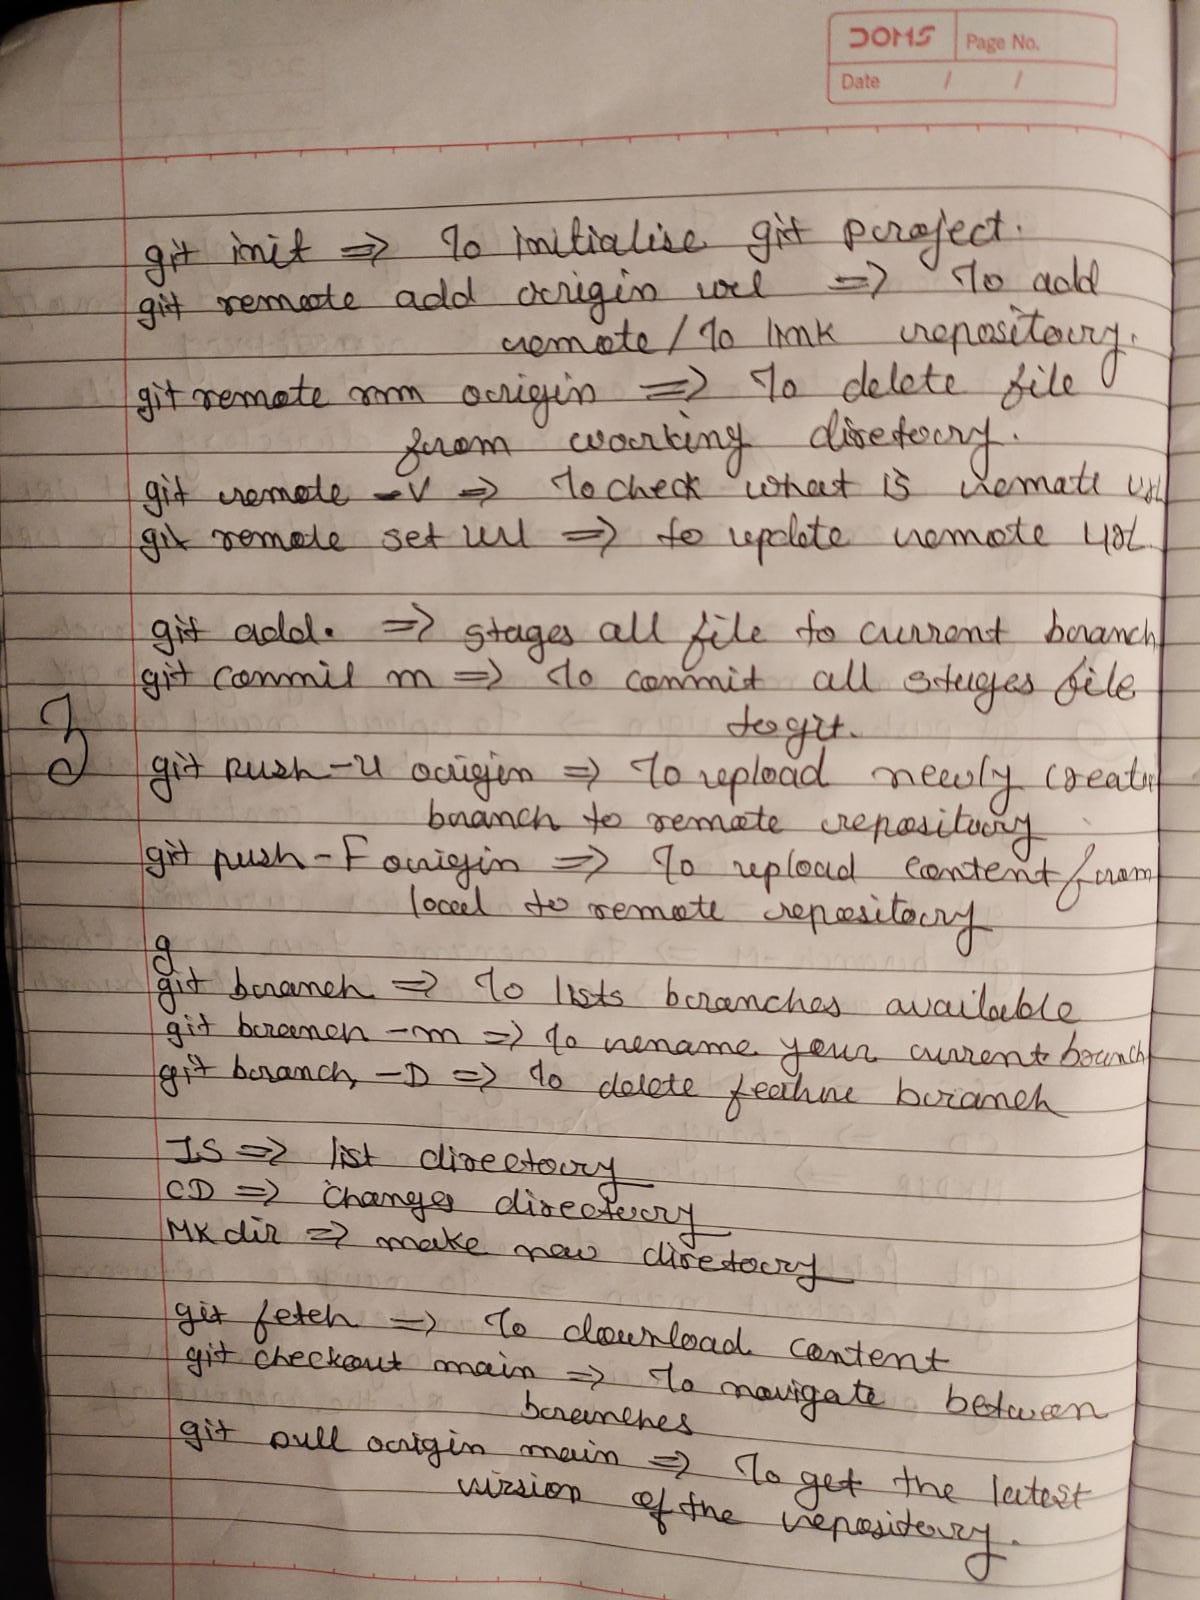 DOMS Page No.
Date / /
git init => To initialise git project.
git remote add origin url => To add
remote / To link repository.
git remote rm origin => To delete file
from working diretory.
git remote -V => To check what is remote url
git remote set url => to update remote url.
git add . => stages all file to current branch
git commit m => To commit all stages file
to git.
3
git push -u origin => To upload newly create
branch to remote repository
git push -F origin => To upload content from
local to remote repository
g
git branch => To lists branches available
git branch -m => To rename your current branch
git branch, -D => To delete feature branch
IS => list directory
CD => changes directory
MK dir => make new diretory
git fetch => To download content
git checkout main => To navigate between
branches
git pull origin main => To get the latest
virsion of the repository.